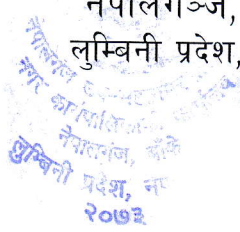 नेपालगञ्ज,
लुम्बिनी प्रदेश,
नेपालगंज
नगर कार्यपालिकाको
नेपालगंज, बाँके
लुम्बिनी प्रदेश,
२०७३